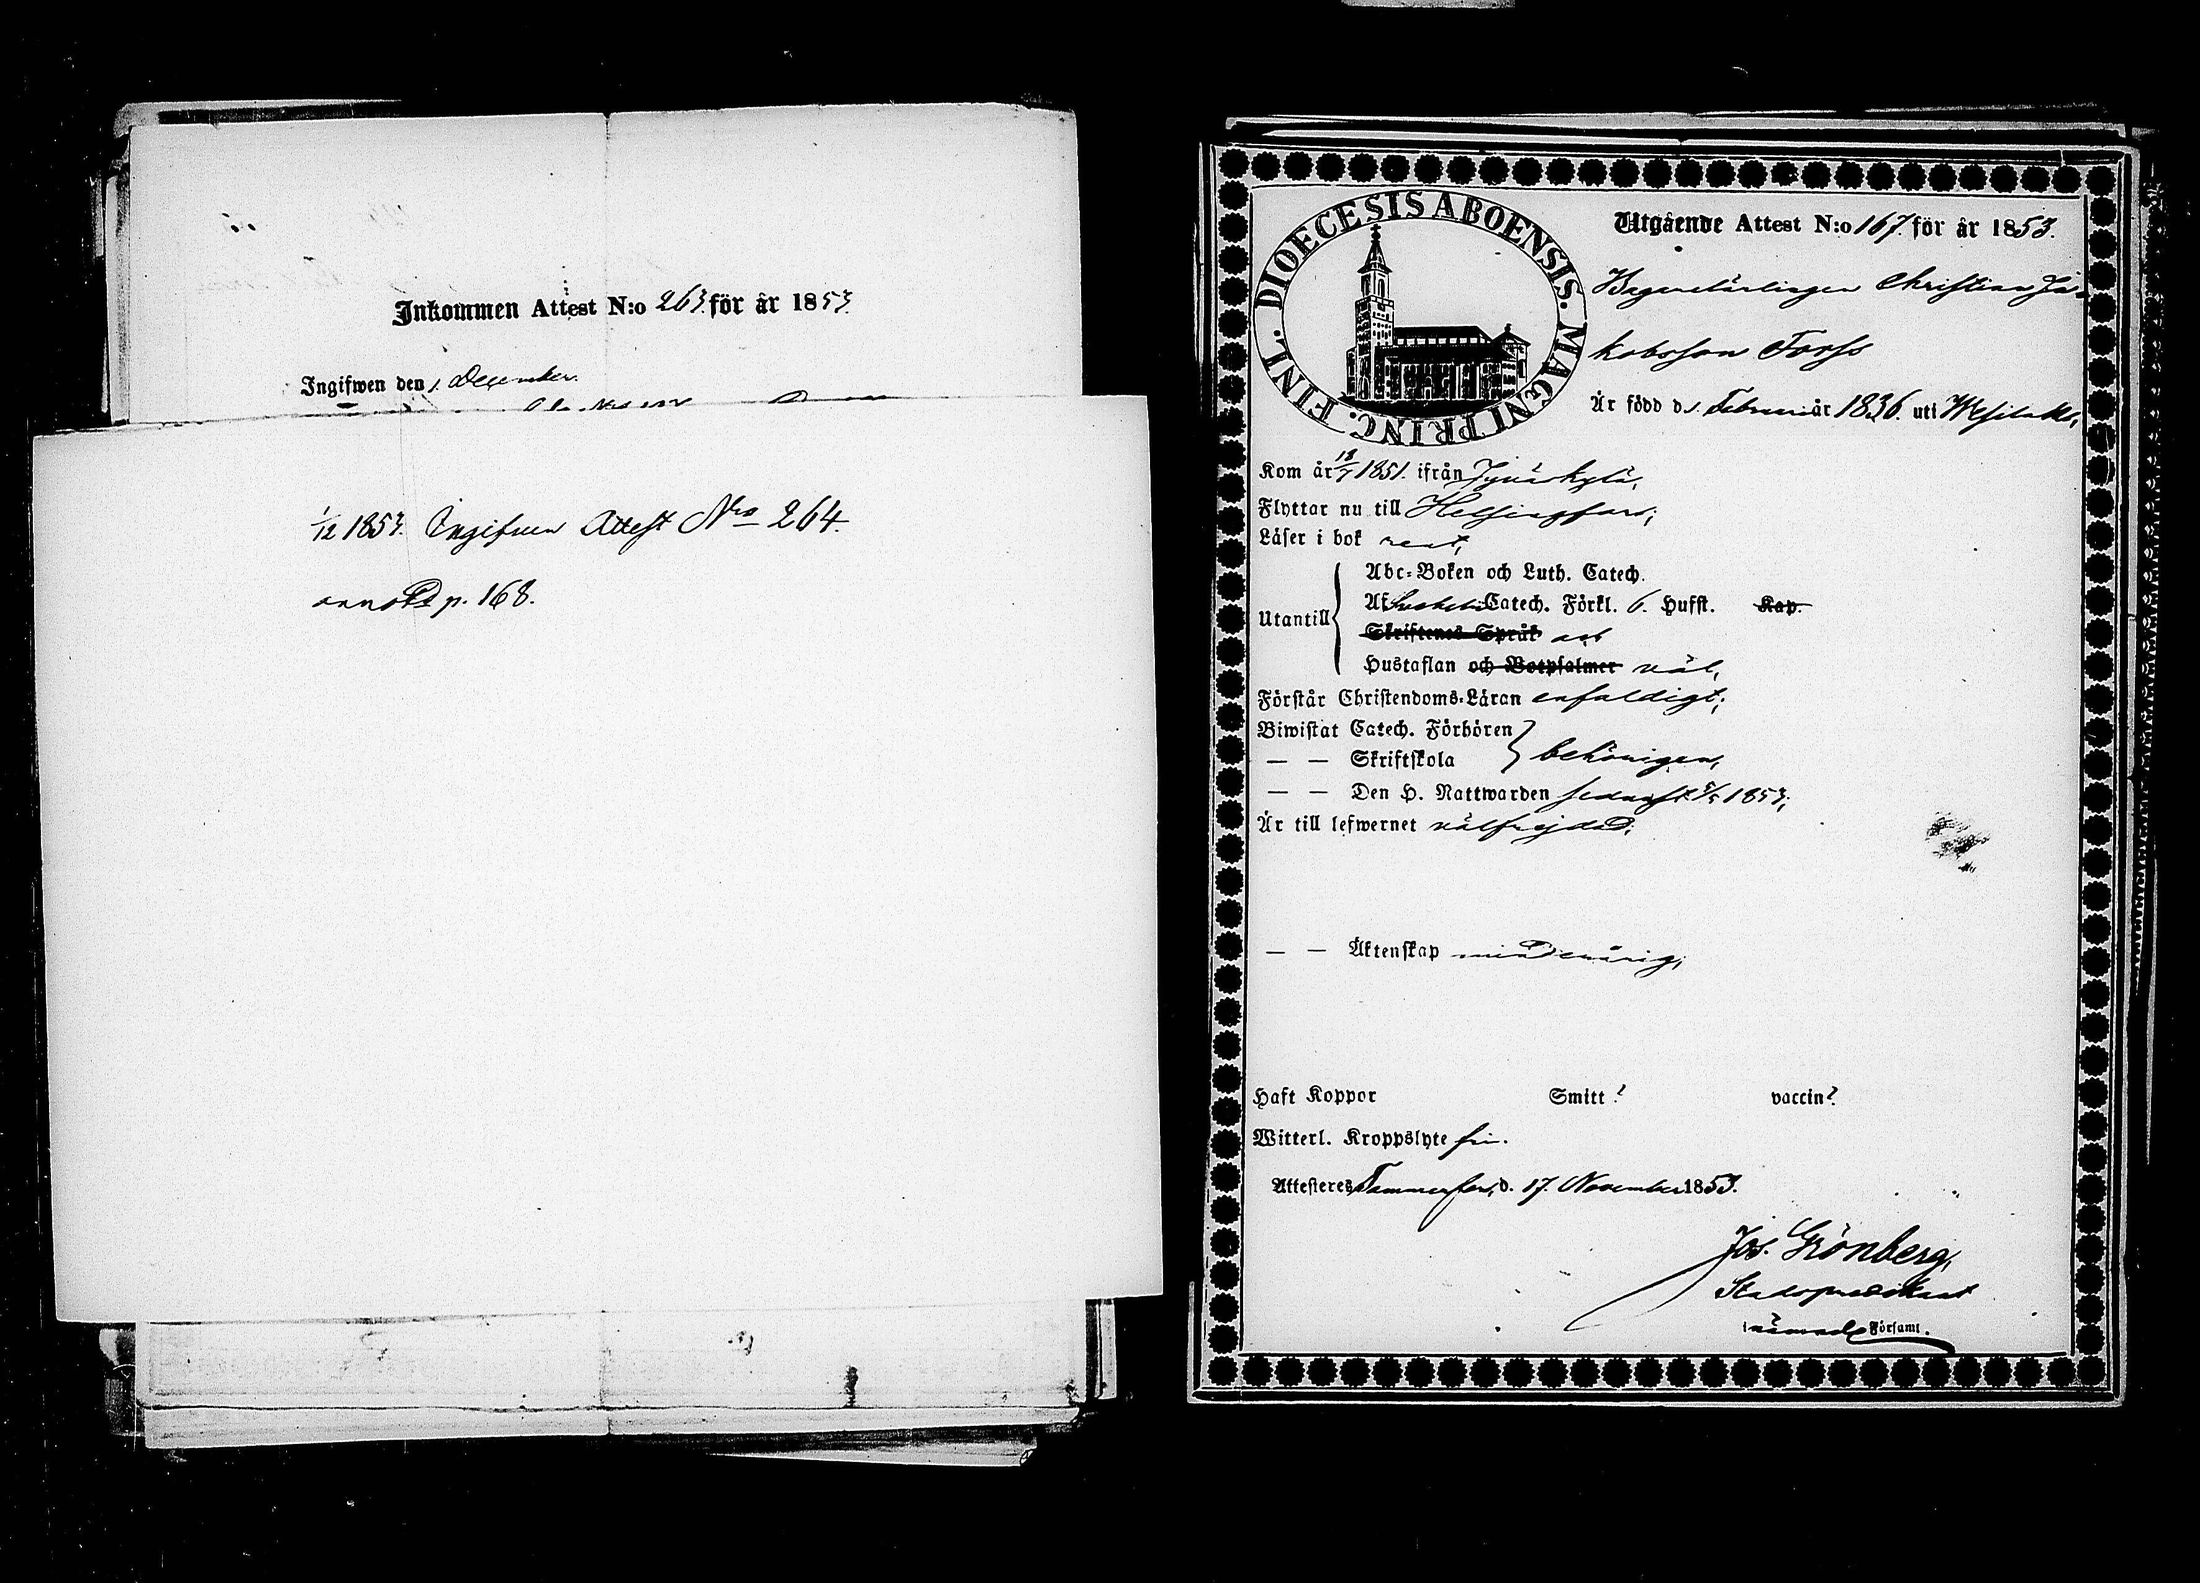 Inkommen Attest N:o 263. för år 1853.
Ingifwen den 1. December.
1/12 1853. Ingifven Attest Nro 264.
annoterd p. 168.
DIOECESIS ABOENSIS. MAGNI PRINC. FINL.
Utgående Attest N:o 167. för år 1853.
Bagarelärlingen Christian Ja-
kobsson Forss
Är född d. 1. Februari år 1836. uti Wesilaks,
Kom år 18/7 1851. ifrån Jyväskylä,
Flyttar nu till Helsingfors;
Läser i bok rent,
Utantill
Abc-Boken och Luth. Catech.
Af Svebelii Catech. Förkl. 6. Hufst. Kap.
Skriftenes Språk och
Hustaflan och Botpsalmer väl,
Förstår Christendoms-Läran enfaldigt;
Biwistat Catech. Förhören
— — Skriftskola behörigen,
— — Den H. Nattwarden sednast 5/5 1853;
Är till lefwernet välfrejdad;
— — Äktenskap minderårig,
Haft Koppor Smitt? vaccin?
Witterl. Kroppslyte fri.
Attesteres Tammerfors, d. 17. November 1853.
Jos. Grönberg,
Stadspredikant
i nämnde Församl.